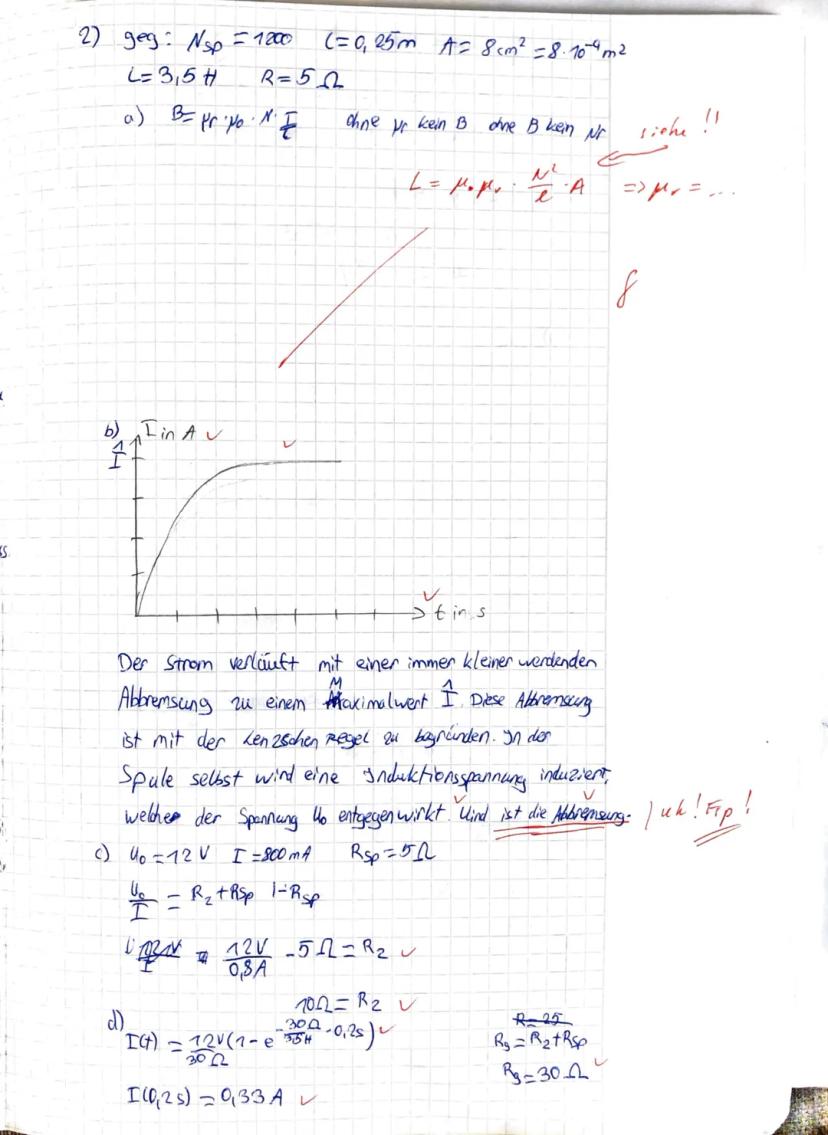 2) geg: Nsp = 1200 l = 0,25m A = 8cm² = 8·10⁻⁴m²
L = 3,5H R = 5Ω
a) B = μr·μ0·N·I/l ohne μr kein B ohne B kein Nr siehe!!
L = μ0 μr · N²/l · A => μr = ...
b) I in A ✓ ✓
Î
✓
t in s
Der Strom verläuft mit einer immer kleiner werdenden
Abbremsung zu einem Maximalwert Î. Diese Abbremsung
ist mit der Lenzschen Regel zu begründen. In der
Spule selbst wird eine Induktionsspannung induziert,
welche der Spannung U0 entgegenwirkt. ✓ Uind ist die Abbremsung. ✓
c) U0 = 12V I = 800mA Rsp = 5Ω
U0/I = R2 + Rsp |-Rsp
12V/0,8A - 5Ω = R2 ✓
10Ω = R2 ✓
d) I(t) = 12V/30Ω (1 - e^(-30Ω/35H · 0,2s)) ✓
R = 25
Rg = R2 + Rsp
Rg = 30Ω ✓
I(0,2s) = 0,33A ✓